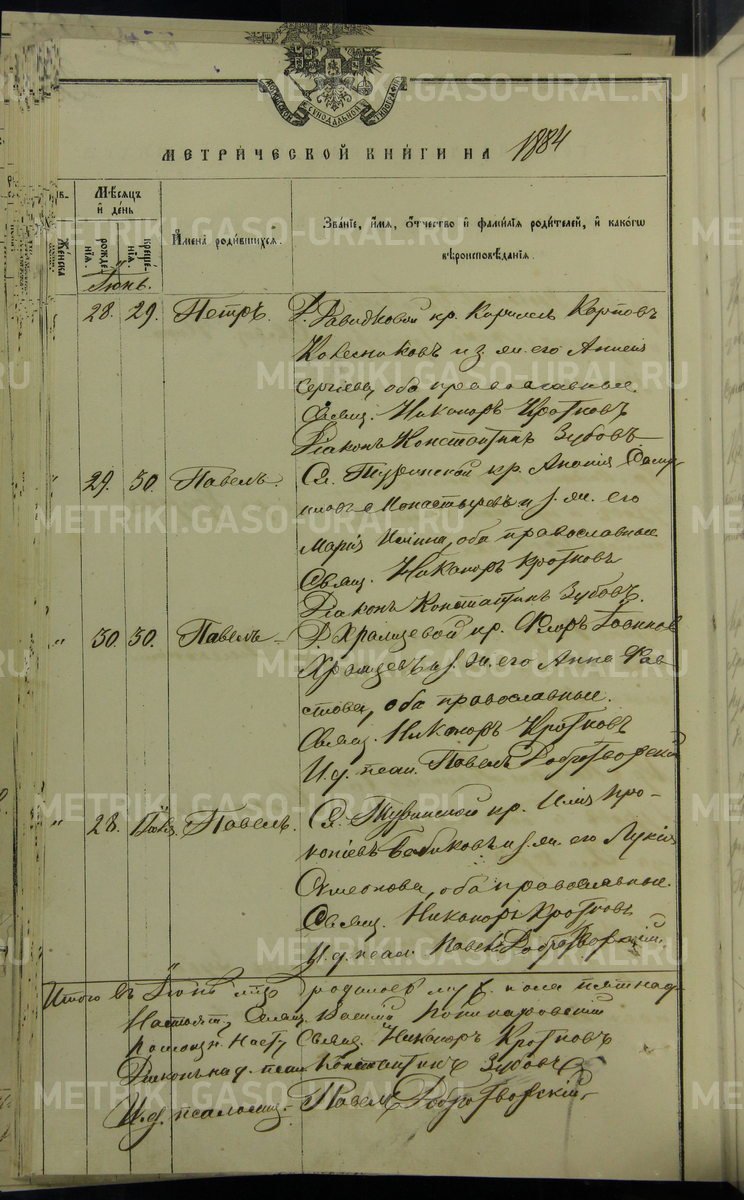 МОСКОВСКОЙ СѴНОДАЛЬНОЙ ТИПОГРАФІИ
МЕТРИ́ЧЕСКОЙ КНИ́ГИ НА 1884
Мѣсяцъ и день
Же́нска
рожде́нія
креще́нія
Имена̀ роди́вшихся.
Зва́ніе, и́мя, о́тчество и фами́лія роди́телей, и како́гѡ вѣроисповѣ́данія.
Іюнь.
28. 29. Петръ. Д. Давыдковой кр. Кириллъ Карповъ
Колесниковъ и з. ж. его Анисия
Сергіева, оба православные.
Свящ. Никаноръ Кротковъ
Діаконъ Константинъ Зубовъ
" 29. 30. Павелъ. С. Туринской кр. Ананія
Монастыревъ и з. ж. его
Марія Ильина, оба православные
Свящ. Никаноръ Кротковъ
Діаконъ Константинъ Зубовъ.
" 30. 30. Павелъ Д. Храмцевой кр. Флоръ
Храмцевъ и з. ж. его Анна Фав-
стова, оба православные.
Свящ. Никаноръ Кротковъ
И. д. псал. Павелъ Добротворскій
" 28. Павелъ. С. Туринской кр. Илія Про-
копіевъ Бабиковъ и з. ж. его Лукія
Симеонова, оба православные.
Свящ. Никаноръ Кротковъ
И. д. псал. Павелъ Добротворскій.
Итого въ Іюнѣ мцѣ родилось муж. пола пятнад-
Настоят. Свящ. Василій
Помощн. Наст. Свящ. Никаноръ Кротковъ
Діаконъ на д. псал. Константинъ Зубовъ
И. д. псаломщ. Павелъ Добротворскій
METRIKI.GASO-URAL.RU